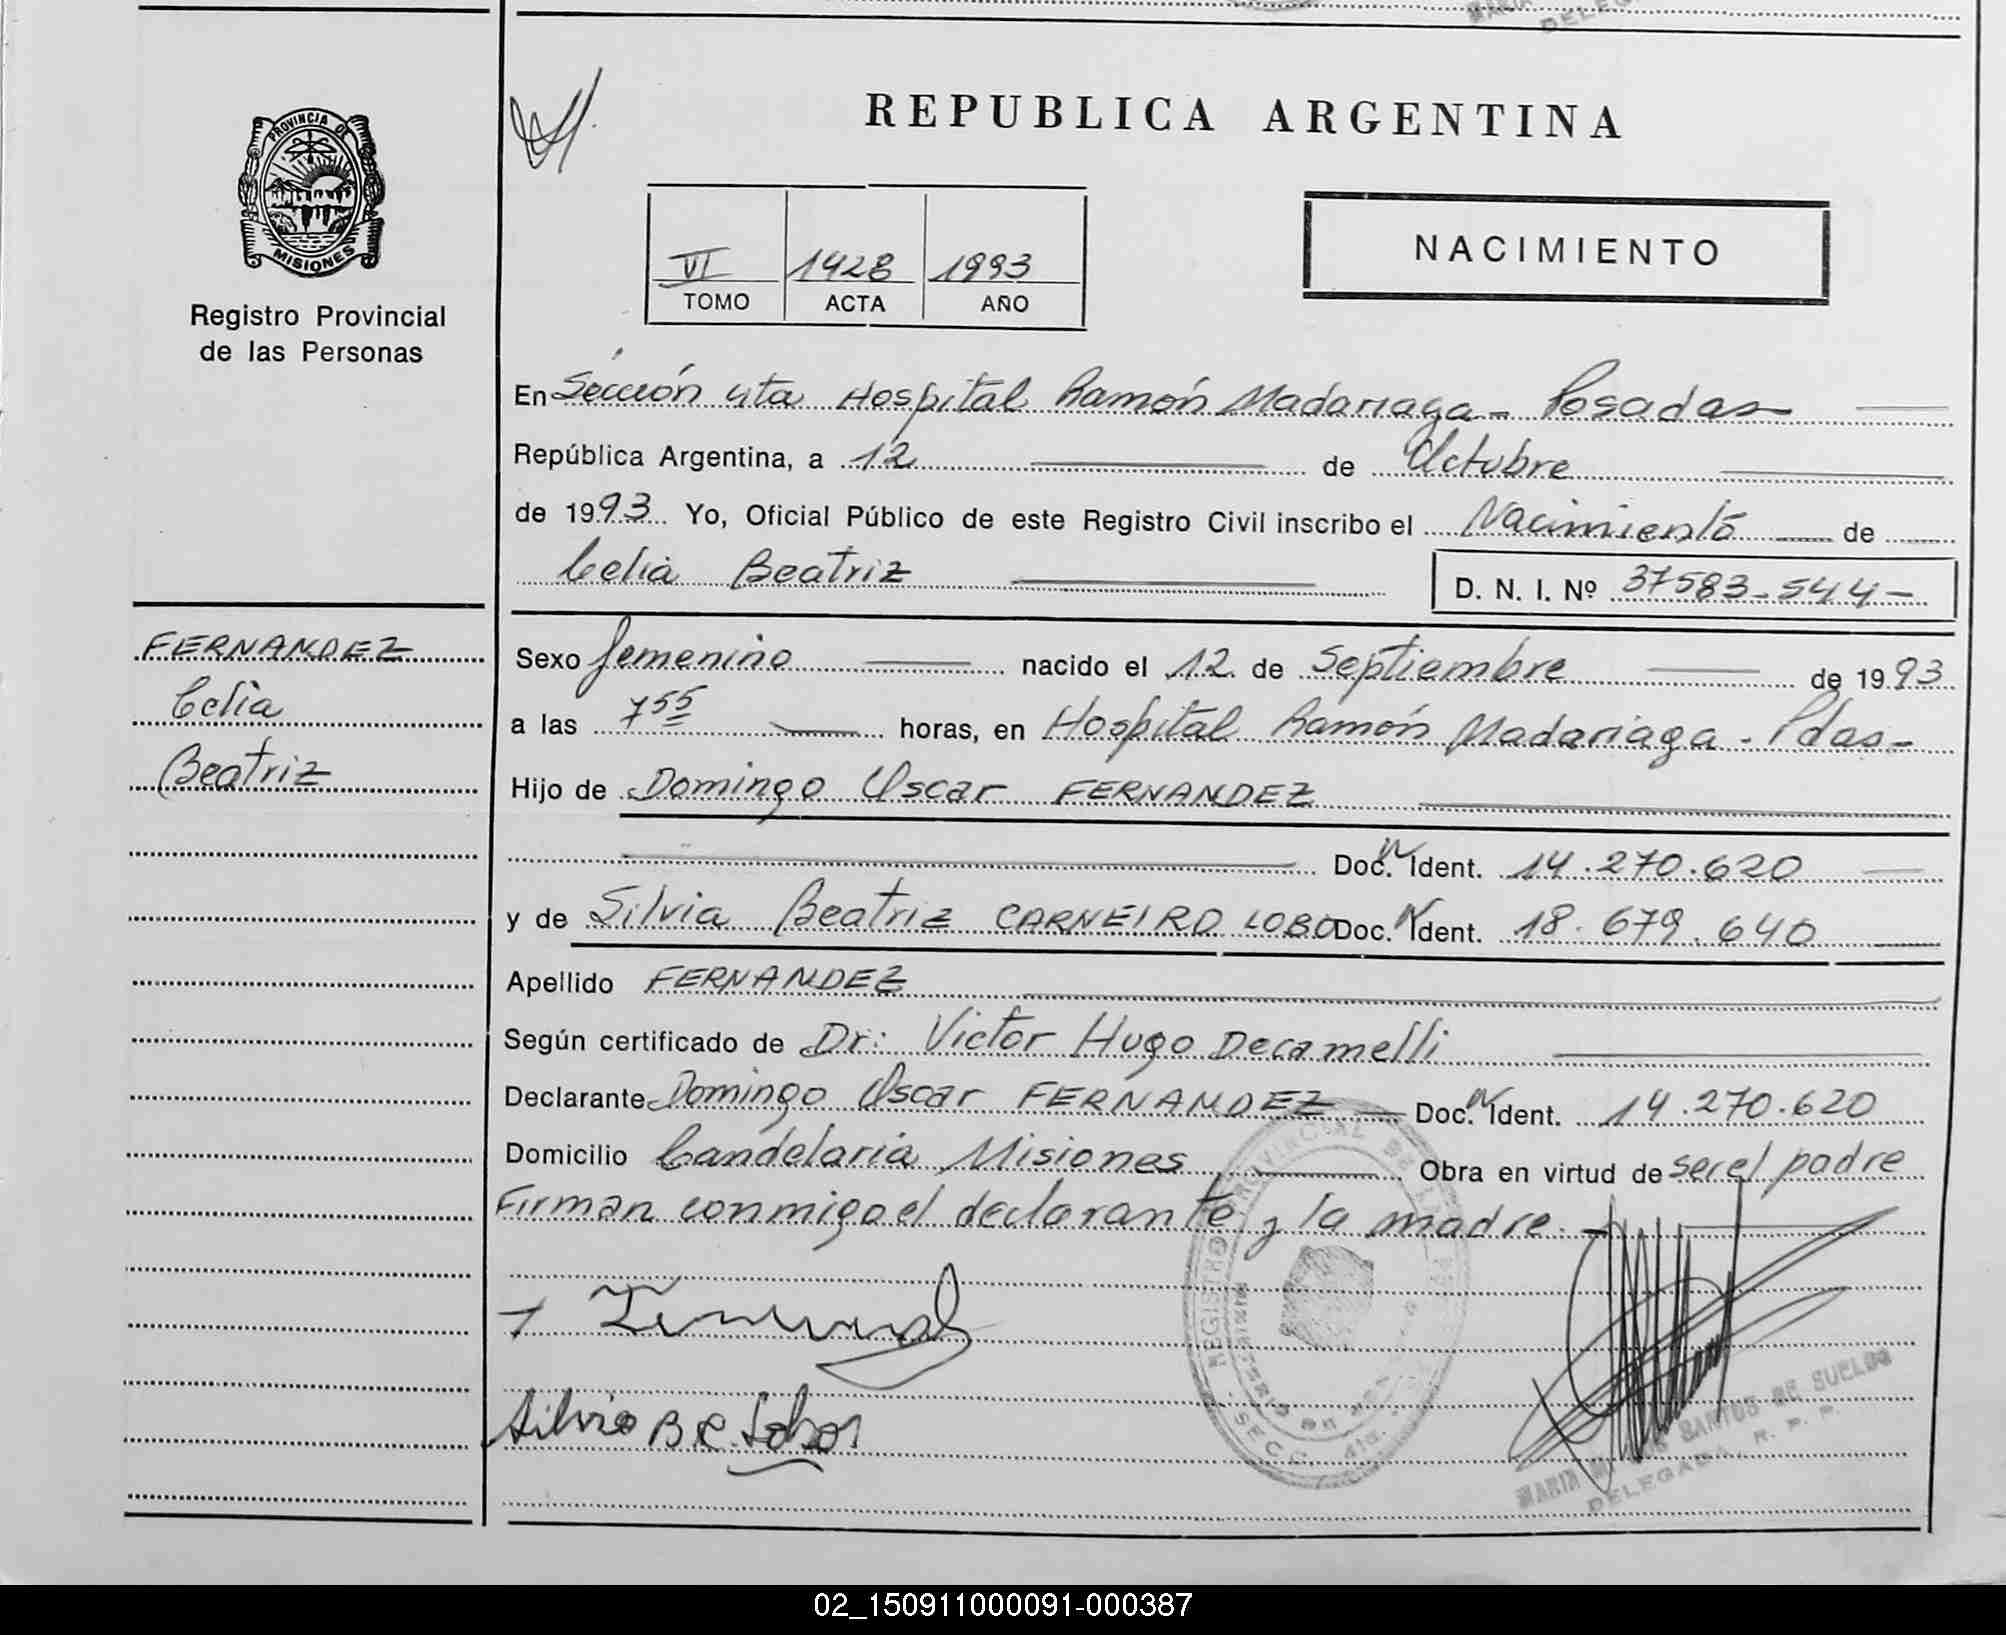 REPUBLICA ARGENTINA
PROVINCIA DE
MISIONES
Registro Provincial
de las Personas
VI 1428 1993
TOMO ACTA AÑO
NACIMIENTO
En Sección 4ta Hospital Ramón Madariaga - Posadas
República Argentina, a 12 de Octubre
de 1993 Yo, Oficial Público de este Registro Civil inscribo el Nacimiento de
Celia Beatriz D. N. I. Nº 37583.544-
FERNANDEZ
Celia
Beatriz
Sexo femenino nacido el 12 de Septiembre de 1993
a las 7 55 horas, en Hospital Ramón Madariaga - Pdas-
Hijo de Domingo Oscar FERNANDEZ
Doc. Ident. 14.270.620
y de Silvia Beatriz CARNEIRO LOBO Doc. Ident. 18.679.640
Apellido FERNANDEZ
Según certificado de Dr: Victor Hugo Decamelli
Declarante Domingo Oscar FERNANDEZ Doc. Ident. 14.270.620
Domicilio Candelaria Misiones Obra en virtud de ser el padre
Firman conmigo el declarante y la madre.-
Silvia B C. Lobo
REGISTRO PROVINCIAL DE LAS
SECC. 4ta.
SANTOS DE SUELDO
DELEGADA R. P. P.
02_150911000091-000387